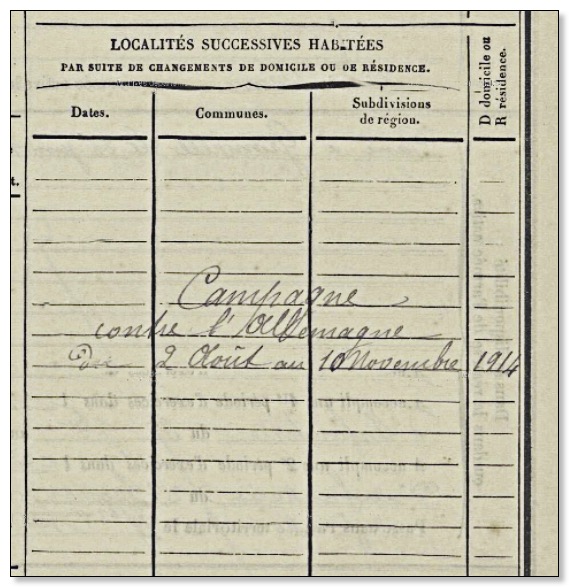 LOCALITÉS SUCCESSIVES HABITÉES
PAR SUITE DE CHANGEMENTS DE DOMICILE OU DE RÉSIDENCE.
D domicile ou
R résidence.
Dates.
Communes.
Subdivisions
de région.
t.
Campagne
contre l'Allemagne
Du 2 Août au 10 Novembre 1914